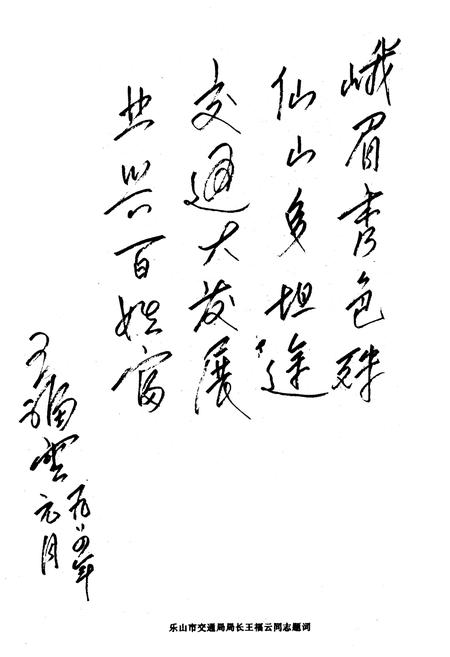 峨眉秀色殊
仙山多坦途
交通大发展
业兴百姓富
王福雲
一九八四年
元月
乐山市交通局局长王福云同志题词